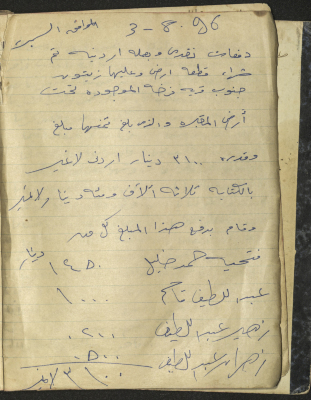 3-8-96 الموافق السبت
دفعات نقدي وبعمله اردنيه تم
شراء قطعة ارض وعليها زيتون
جنوب قريه فرخه الموجوده تحت
أرض المقبره والذي بلغ ثمنها مبلغ
وقدره ٣١٠٠ دينار اردني لاغير
بالكتابه ثلاثه آلآف ومئه دينار لاغير
وقام بدفع هذا المبلغ كل من
فتحيه حمد خليل ١٤٥٠ دينار
عبد اللطيف قاسم ١٠٠٠
زهير عبد اللطيف ٠٢٠٠
زهران عبد اللطيف ٠٥٠٠
٣١٠٠ لاغير